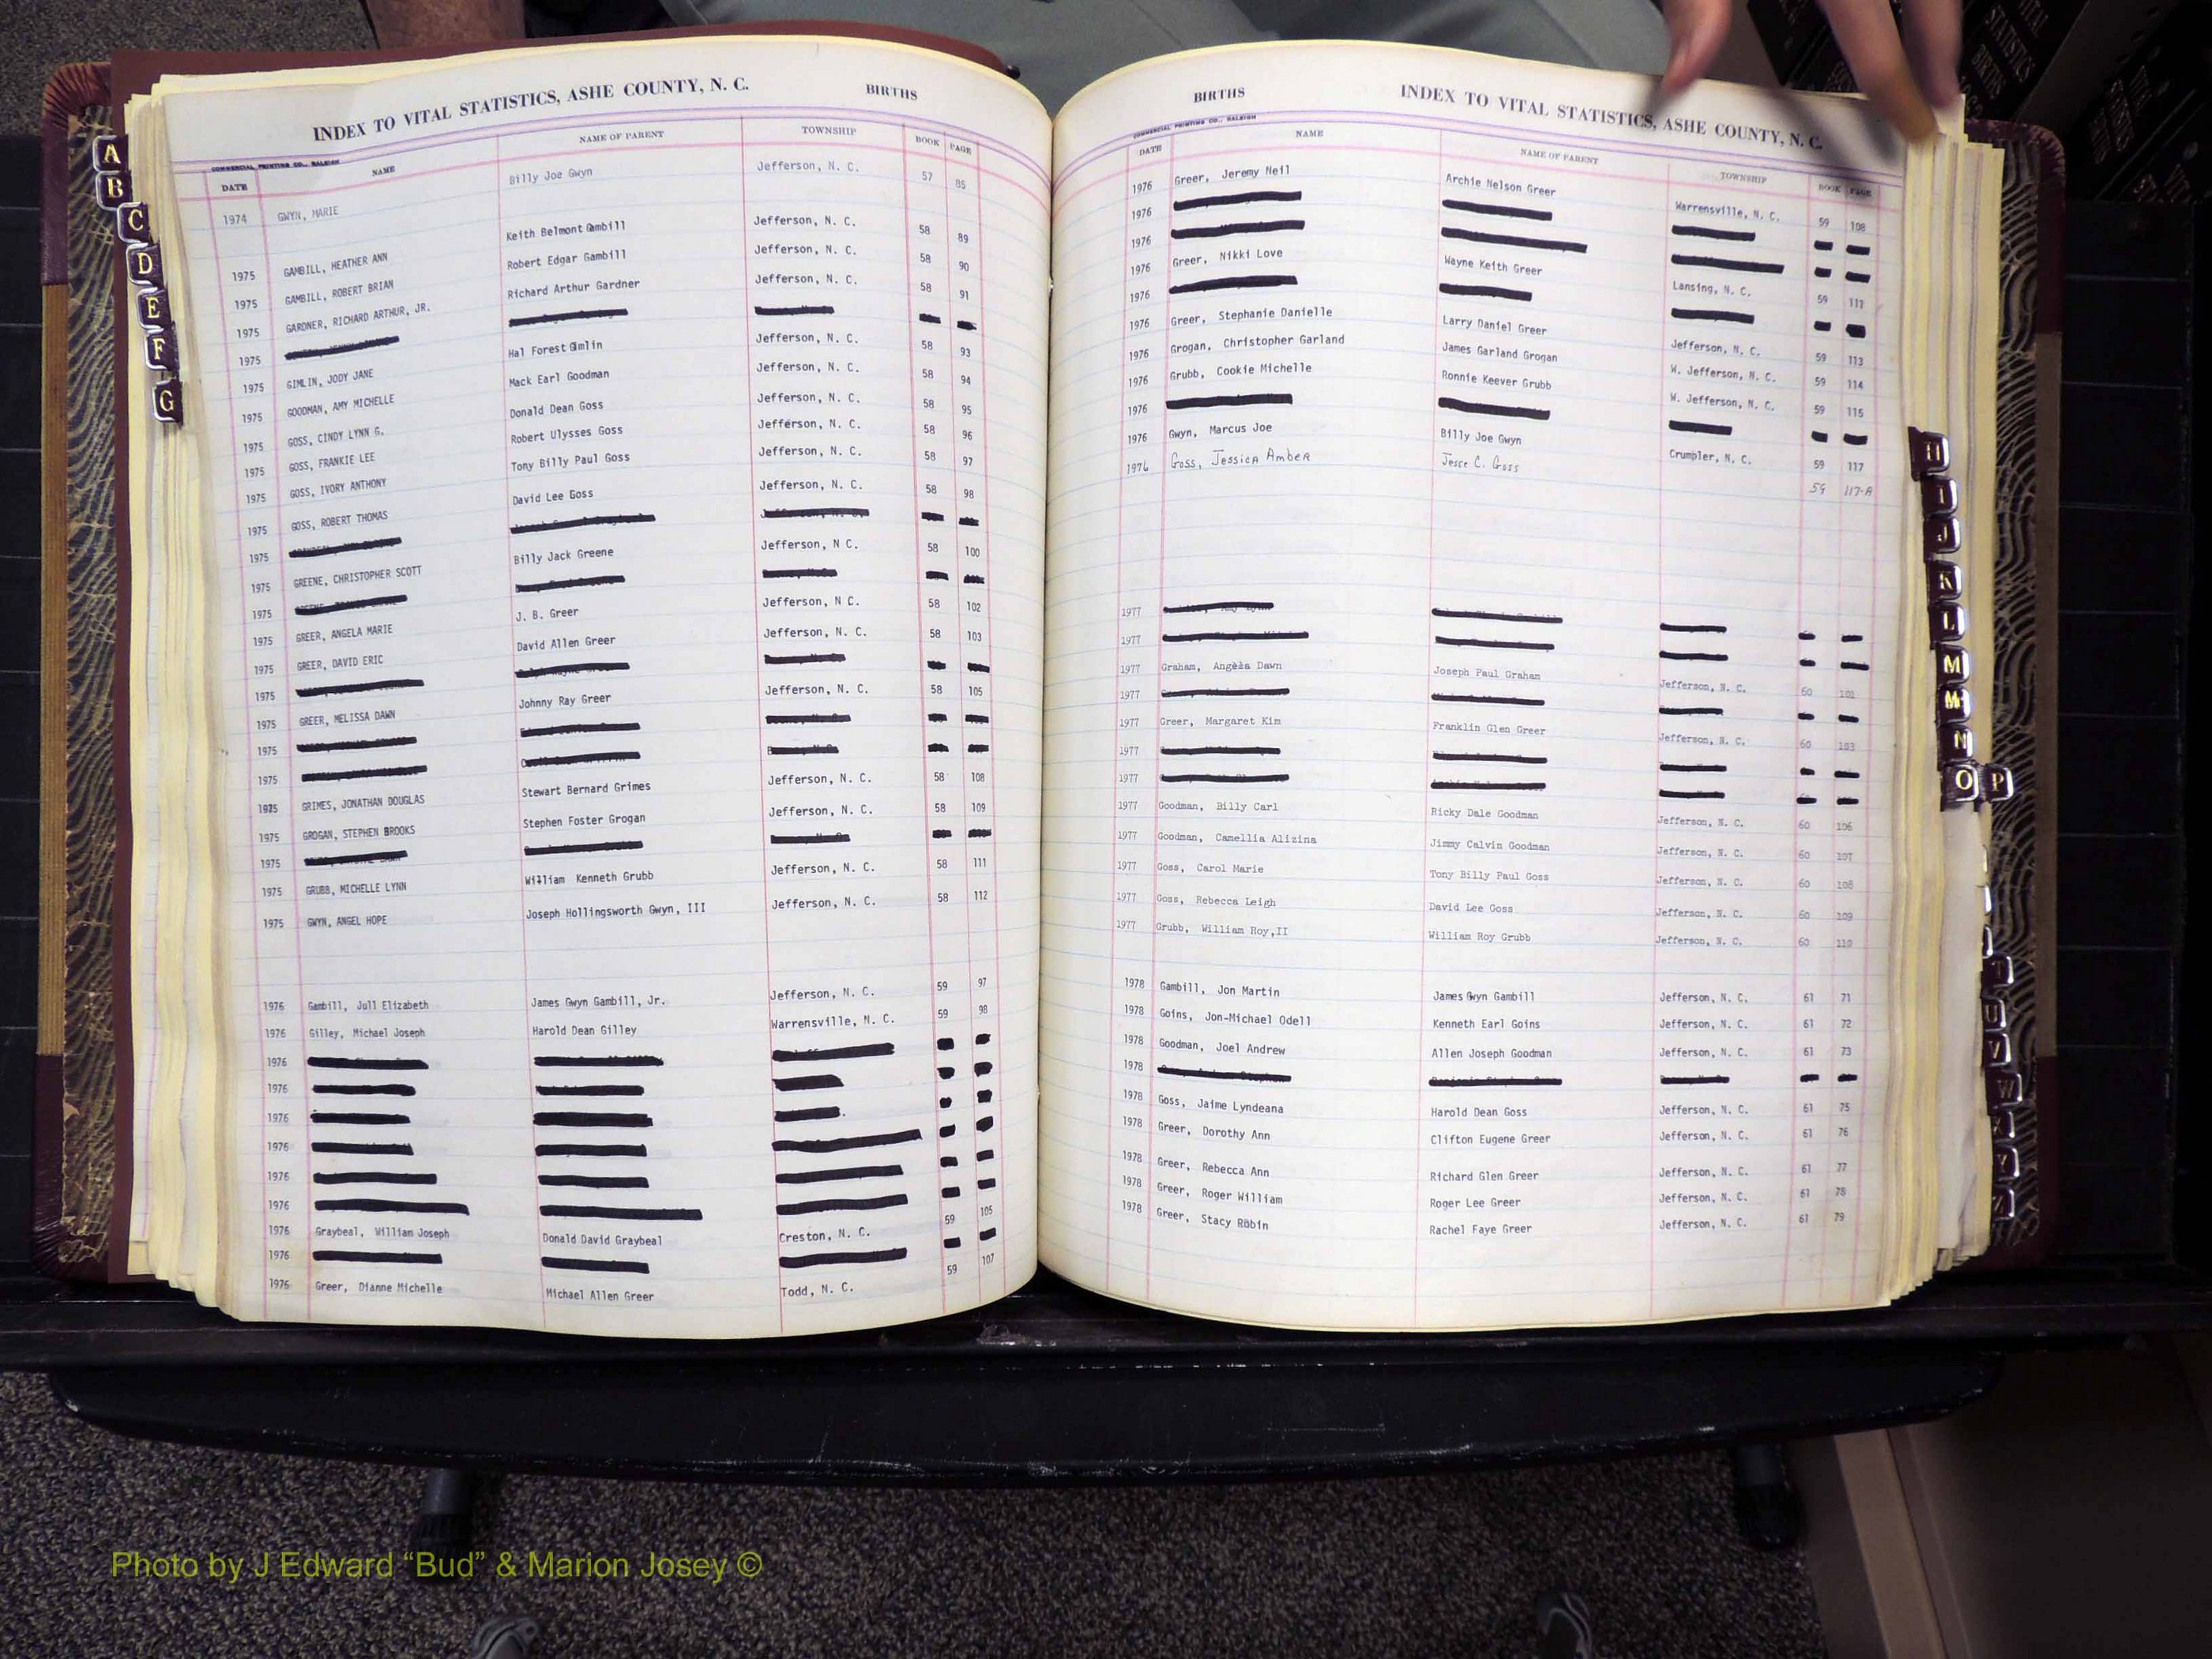 INDEX TO VITAL STATISTICS, ASHE COUNTY, N. C. BIRTHS
COMMERCIAL PRINTING CO., RALEIGH
DATE NAME NAME OF PARENT TOWNSHIP BOOK PAGE
1974 GWYN, MARIE Billy Joe Gwyn Jefferson, N. C. 57 85
1975 GAMBILL, HEATHER ANN Keith Belmont Gambill Jefferson, N. C. 58 89
1975 GAMBILL, ROBERT BRIAN Robert Edgar Gambill Jefferson, N. C. 58 90
1975 GARDNER, RICHARD ARTHUR, JR. Richard Arthur Gardner Jefferson, N. C. 58 91
1975
1975 GIMLIN, JODY JANE Hal Forest Gimlin Jefferson, N. C. 58 93
1975 GOODMAN, AMY MICHELLE Mack Earl Goodman Jefferson, N. C. 58 94
1975 GOSS, CINDY LYNN G. Donald Dean Goss Jefferson, N. C. 58 95
1975 GOSS, FRANKIE LEE Robert Ulysses Goss Jefferson, N. C. 58 96
1975 GOSS, IVORY ANTHONY Tony Billy Paul Goss Jefferson, N. C. 58 97
1975 GOSS, ROBERT THOMAS David Lee Goss Jefferson, N. C. 58 98
1975
1975 GREENE, CHRISTOPHER SCOTT Billy Jack Greene Jefferson, N C. 58 100
1975
1975 GREER, ANGELA MARIE J. B. Greer Jefferson, N C. 58 102
1975 GREER, DAVID ERIC David Allen Greer Jefferson, N. C. 58 103
1975
1975 GREER, MELISSA DAWN Johnny Ray Greer Jefferson, N. C. 58 105
1975
1975
1975 GRIMES, JONATHAN DOUGLAS Stewart Bernard Grimes Jefferson, N. C. 58 108
1975 GROGAN, STEPHEN BROOKS Stephen Foster Grogan Jefferson, N. C. 58 109
1975
1975 GRUBB, MICHELLE LYNN William Kenneth Grubb Jefferson, N. C. 58 111
1975 GWYN, ANGEL HOPE Joseph Hollingsworth Gwyn, III Jefferson, N. C. 58 112
1976 Gambill, Jull Elizabeth James Gwyn Gambill, Jr. Jefferson, N. C. 59 97
1976 Gilley, Michael Joseph Harold Dean Gilley Warrensville, N. C. 59 98
1976
1976
1976
1976
1976
1976
1976 Graybeal, William Joseph Donald David Graybeal Creston, N. C. 59 105
1976
1976 Greer, Dianne Michelle Michael Allen Greer Todd, N. C. 59 107
A
B
C
D
E
F
G
BIRTHS INDEX TO VITAL STATISTICS, ASHE COUNTY, N. C.
COMMERCIAL PRINTING CO., RALEIGH
DATE NAME NAME OF PARENT TOWNSHIP BOOK PAGE
1976 Greer, Jeremy Neil Archie Nelson Greer Warrensville, N. C. 59 108
1976
1976
1976 Greer, Nikki Love Wayne Keith Greer Lansing, N. C. 59 111
1976
1976 Greer, Stephanie Danielle Larry Daniel Greer Jefferson, N. C. 59 113
1976 Grogan, Christopher Garland James Garland Grogan W. Jefferson, N. C. 59 114
1976 Grubb, Cookie Michelle Ronnie Keever Grubb W. Jefferson, N. C. 59 115
1976
1976 Gwyn, Marcus Joe Billy Joe Gwyn Crumpler, N. C. 59 117
1976 Goss, Jessica Amber Jesse C. Goss 59 117-A
1977
1977
1977 Graham, Angela Dawn Joseph Paul Graham Jefferson, N. C. 60 101
1977
1977 Greer, Margaret Kim Franklin Glen Greer Jefferson, N. C. 60 103
1977
1977
1977 Goodman, Billy Carl Ricky Dale Goodman Jefferson, N. C. 60 106
1977 Goodman, Camellia Alizina Jimmy Calvin Goodman Jefferson, N. C. 60 107
1977 Goss, Carol Marie Tony Billy Paul Goss Jefferson, N. C. 60 108
1977 Goss, Rebecca Leigh David Lee Goss Jefferson, N. C. 60 109
1977 Grubb, William Roy,II William Roy Grubb Jefferson, N. C. 60 110
1978 Gambill, Jon Martin James Gwyn Gambill Jefferson, N. C. 61 71
1978 Goins, Jon-Michael Odell Kenneth Earl Goins Jefferson, N. C. 61 72
1978 Goodman, Joel Andrew Allen Joseph Goodman Jefferson, N. C. 61 73
1978
1978 Goss, Jaime Lyndeana Harold Dean Goss Jefferson, N. C. 61 75
1978 Greer, Dorothy Ann Clifton Eugene Greer Jefferson, N. C. 61 76
1978 Greer, Rebecca Ann Richard Glen Greer Jefferson, N. C. 61 77
1978 Greer, Roger William Roger Lee Greer Jefferson, N. C. 61 78
1978 Greer, Stacy Robin Rachel Faye Greer Jefferson, N. C. 61 79
H
I
J
K
L
M
M
N
O P
T
U
V
W
X
Y
VITAL STATISTICS BIRTHS
Photo by J Edward “Bud” & Marion Josey ©